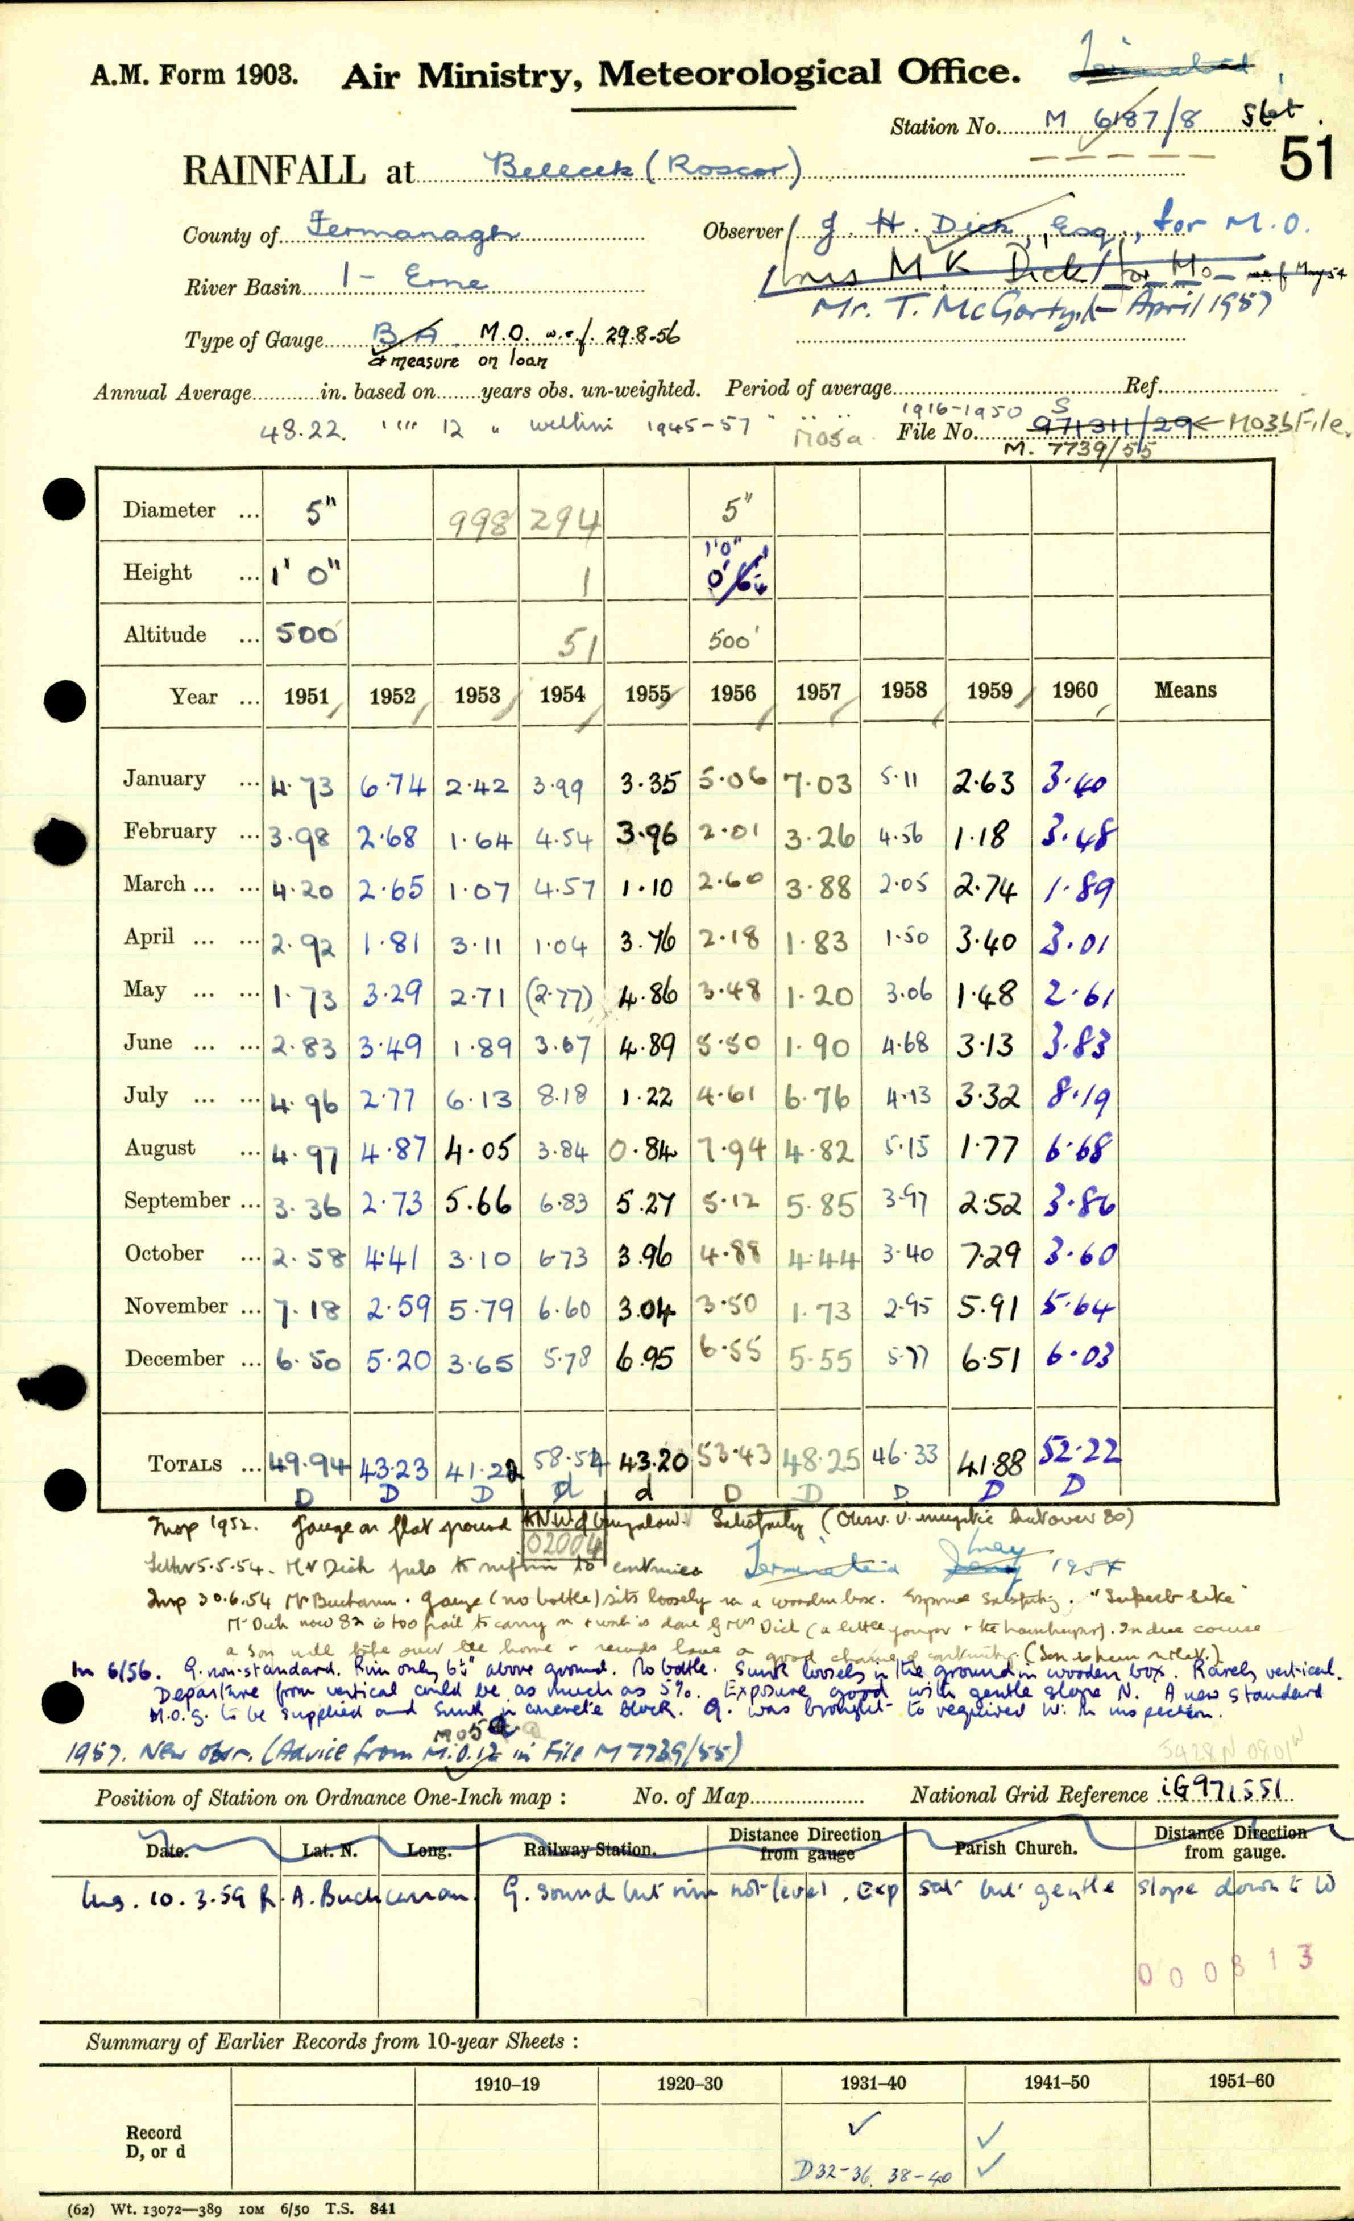 A.M. Form 1903. Air Ministry, Meteorological Office. Terminated
Station No. M 6187/8 Stet.
51
RAINFALL at Belleek (Roscor)
County of Fermanagh Observer J. H. Dick, Esq., for M.O.
River Basin 1 - Erne Mrs M K Dick for Mo - wef May 54
Mr. T. McGarty, April 1957
Type of Gauge B A M.O. w.e.f. 29.8-56
& measure on loan
Annual Average in. based on years obs. un-weighted. Period of average Ref.
48.22. " " 12 " within 1945-57 " 1916-1950 S
M05a File No. 971311/29 ← M03b File.
M. 7739/55
Diameter ... 5" 998 294 5"
Height ... 1' 0" 1 1'0" 0'
Altitude ... 500 51 500'
Year ... 1951 1952 1953 1954 1955 1956 1957 1958 1959 1960 Means
January ... 4.73 6.74 2.42 3.99 3.35 5.06 7.03 5.11 2.63 3.40
February ... 3.98 2.68 1.64 4.54 3.96 2.01 3.26 4.56 1.18 3.48
March ... ... 4.20 2.65 1.07 4.57 1.10 2.60 3.88 2.05 2.74 1.89
April ... ... 2.92 1.81 3.11 1.04 3.76 2.18 1.83 1.50 3.40 3.01
May ... ... 1.73 3.29 2.71 (2.77) 4.86 3.48 1.20 3.06 1.48 2.61
June ... ... 2.83 3.49 1.89 3.67 4.89 5.50 1.90 4.68 3.13 3.83
July ... ... 4.96 2.77 6.13 8.18 1.22 4.61 6.76 4.13 3.32 8.19
August ... 4.97 4.87 4.05 3.84 0.84 7.94 4.82 5.15 1.77 6.68
September ... 3.36 2.73 5.66 6.83 5.27 5.12 5.85 3.97 2.52 3.86
October ... 2.58 4.41 3.10 6.73 3.96 4.88 4.44 3.40 7.29 3.60
November ... 7.18 2.59 5.79 6.60 3.04 3.50 1.73 2.95 5.91 5.64
December ... 6.50 5.20 3.65 5.78 6.95 6.55 5.55 5.77 6.51 6.03
TOTALS ... 49.94 43.23 41.22 58.54 43.20 53.43 48.25 46.33 41.88 52.22
D D D d d D D D D D
Insp 1952. Gauge on flat ground NW of bungalow. Satisfactory (Observ. v. but over 80)
02004
Letter 5.5.54. Mr Dick to continue Terminated May 1954
Insp 30.6.54 Mr Buchanan. Gauge (no bottle) sits loosely in a wooden box. Exposure Satisfactory. "Superb site"
Mr Dick now 82 is too frail to carry on & work is done by Mrs Dick (a little younger & the housekeeper). In due course
a son will take over the home & records have a good chance of continuity. (Son is keen on
In 6/56. G. non-standard. Rim only 6½" above ground. No bottle. Sunk loosely in the ground in wooden box. Rarely vertical.
Departure from vertical could be as much as 5%. Exposure good with gentle slope N. A new standard
M.O.g. to be supplied and sunk in concrete block. G. was brought to required ht. in inspection.
M05a
1957. New obsr. (Advice from M.O.12 in File M7739/55)
5428N 0801W
Position of Station on Ordnance One-Inch map : No. of Map National Grid Reference iG971551
Date. Lat. N. Long. Railway Station. Distance Direction from gauge Parish Church. Distance Direction from gauge.
Ins. 10.3.59 R.A. Buchanan. G. sound but rim not level. Exp sat but gentle slope down to W
000813
Summary of Earlier Records from 10-year Sheets :
1910–19 1920–30 1931–40 1941–50 1951–60
Record ✓ ✓
D, or d D32-36, 38-40 ✓
(62) Wt. 13072—389 10M 6/50 T.S. 841